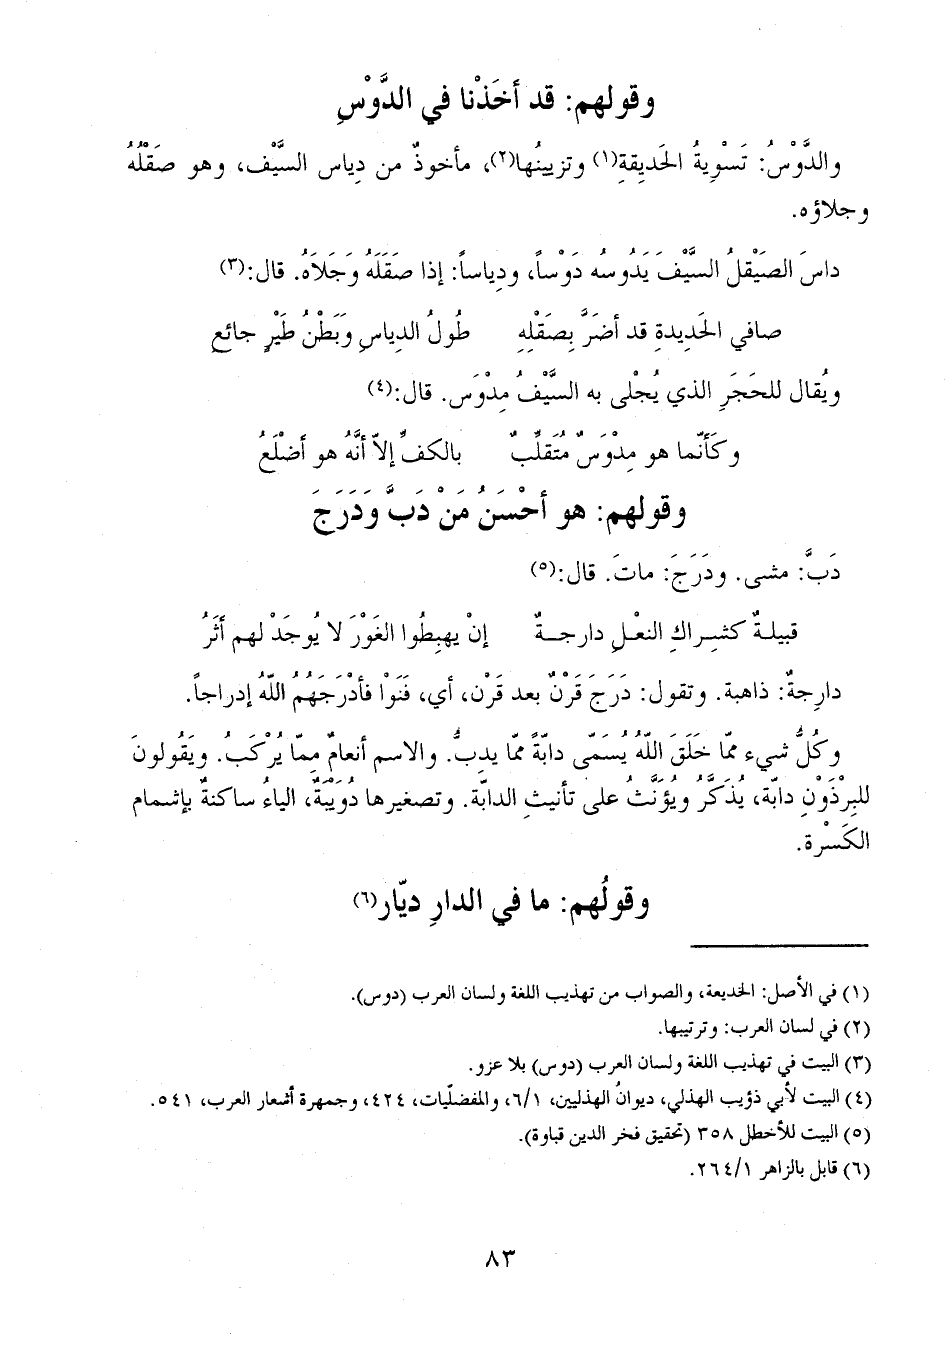 وقولهم: قد أخَذْنا في الدَّوْسِ
والدَّوْسُ: تَسْوِيةُ الحَديقةِ(١) وتزيينُها(٢)، مأخوذٌ من دِياس السَّيْف، وهو صَقْلُهُ
وجلاؤه.
داسَ الصَيْقلُ السَّيْفَ يَدُوسُه دَوْساً، ودِياساً: إذا صَقَلَهُ وَجَلاَهُ. قال:(٣)
صافي الحَدِيدةِ قد أضَرَّ بِصَقْلِهِ طُولُ الدِياسِ وَبَطْنُ طَيْرٍ جائع
ويُقال للحَجَرِ الذي يُجْلى به السَّيْفُ مِدْوَس. قال:(٤)
وكَأنّما هو مِدْوَسٌ مُتَقلِّبٌ بالكفِّ إلاّ أنَّهُ هو أضْلَعُ
وقولهم: هو أحْسَنُ مَنْ دَبَّ وَدَرَجَ
دَبَّ: مشى. ودَرَجَ: ماتَ. قال:(٥)
قبيلةٌ كشِراكِ النعْلِ دارجةٌ إنْ يهبِطُوا الغَوْرَ لا يُوجَدْ لهم أثَرُ
دارِجةٌ: ذاهبة. وتقول: دَرَجَ قَرْنٌ بعد قَرْن، أي، فَنَوْا فأدْرَجَهُمُ اللّهُ إدراجاً.
وكُلُّ شيء ممّا خَلَقَ اللّهُ يُسَمّى دابَّةً ممّا يدِبُّ. والاسم أنعامٌ مِمّا يُرْكَبُ. ويَقُولونَ
للبِرْذَوْنِ دابّة، يُذَكَّرُ ويُؤَنَّثُ على تأنيثِ الدابّة. وتصغيرها دُوَيْبّةٌ، الياءُ ساكنةٌ بإشمام
الكَسْرة.
وقولُهم: ما في الدارِ ديّار(٦)
(١) في الأصل: الخديعة، والصواب من تهذيب اللغة ولسان العرب (دوس).
(٢) في لسان العرب: وترتيبها.
(٣) البيت في تهذيب اللغة ولسان العرب (دوس) بلا عزو.
(٤) البيت لأبي ذؤيب الهذلي، ديوانُ الهذليين، ٦/١، والمفضليّات، ٤٢٤، وجمهرة أشعار العرب، ٥٤١.
(٥) البيت للأخطل ٣٥٨ (تحقيق فخر الدين قباوة).
(٦) قابل بالزاهر ٢٦٤/١.
٨٣